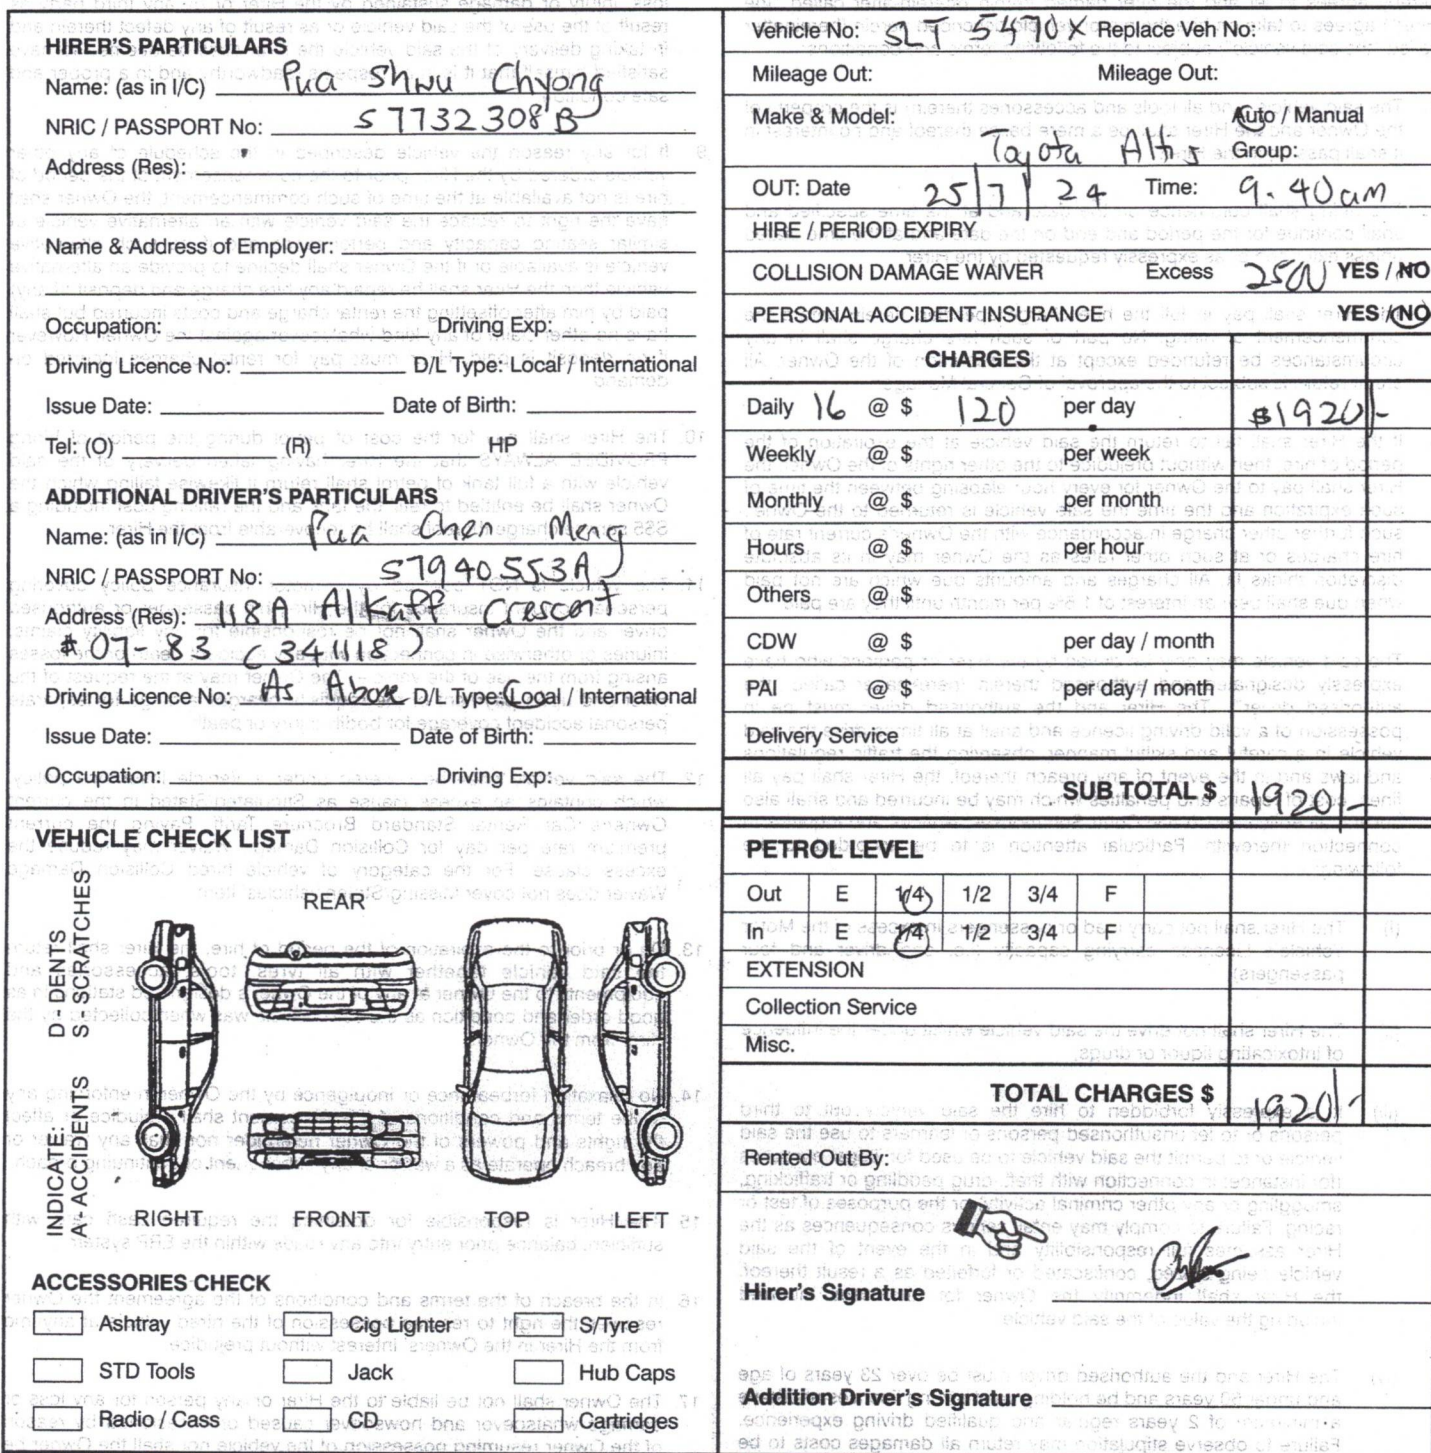 HIRER'S PARTICULARS
Name: (as in I/C) Pua Shwu Chyong
NRIC / PASSPORT No: S7732308B
Address (Res):
Name & Address of Employer:
Occupation: Driving Exp:
Driving Licence No: D/L Type: Local / International
Issue Date: Date of Birth:
Tel: (O) (R) HP
ADDITIONAL DRIVER'S PARTICULARS
Name: (as in I/C) Pua Chen Meng
NRIC / PASSPORT No: S7940553A
Address (Res): 118A Alkaff Crescent
#07-83 (341118)
Driving Licence No: As Above D/L Type: Local / International
Issue Date: Date of Birth:
Occupation: Driving Exp:
VEHICLE CHECK LIST
INDICATE: D - DENTS
A - ACCIDENTS S - SCRATCHES
REAR
RIGHT FRONT TOP LEFT
ACCESSORIES CHECK
Ashtray Cig Lighter S/Tyre
STD Tools Jack Hub Caps
Radio / Cass CD Cartridges
Vehicle No: SLT 5490X Replace Veh No:
Mileage Out: Mileage Out:
Make & Model: Auto / Manual
Toyota Altis Group:
OUT: Date 25/7/24 Time: 9.40am
HIRE / PERIOD EXPIRY
COLLISION DAMAGE WAIVER Excess 2500 YES / NO
PERSONAL ACCIDENT INSURANCE YES / NO
CHARGES
Daily 16 @ $ 120 per day $1920/-
Weekly @ $ per week
Monthly @ $ per month
Hours @ $ per hour
Others @ $
CDW @ $ per day / month
PAI @ $ per day / month
Delivery Service
SUB TOTAL $ 1920/-
PETROL LEVEL
Out E 1/4 1/2 3/4 F
In E 1/4 1/2 3/4 F
EXTENSION
Collection Service
Misc.
TOTAL CHARGES $ 1920/-
Rented Out By:
Hirer's Signature
Addition Driver's Signature